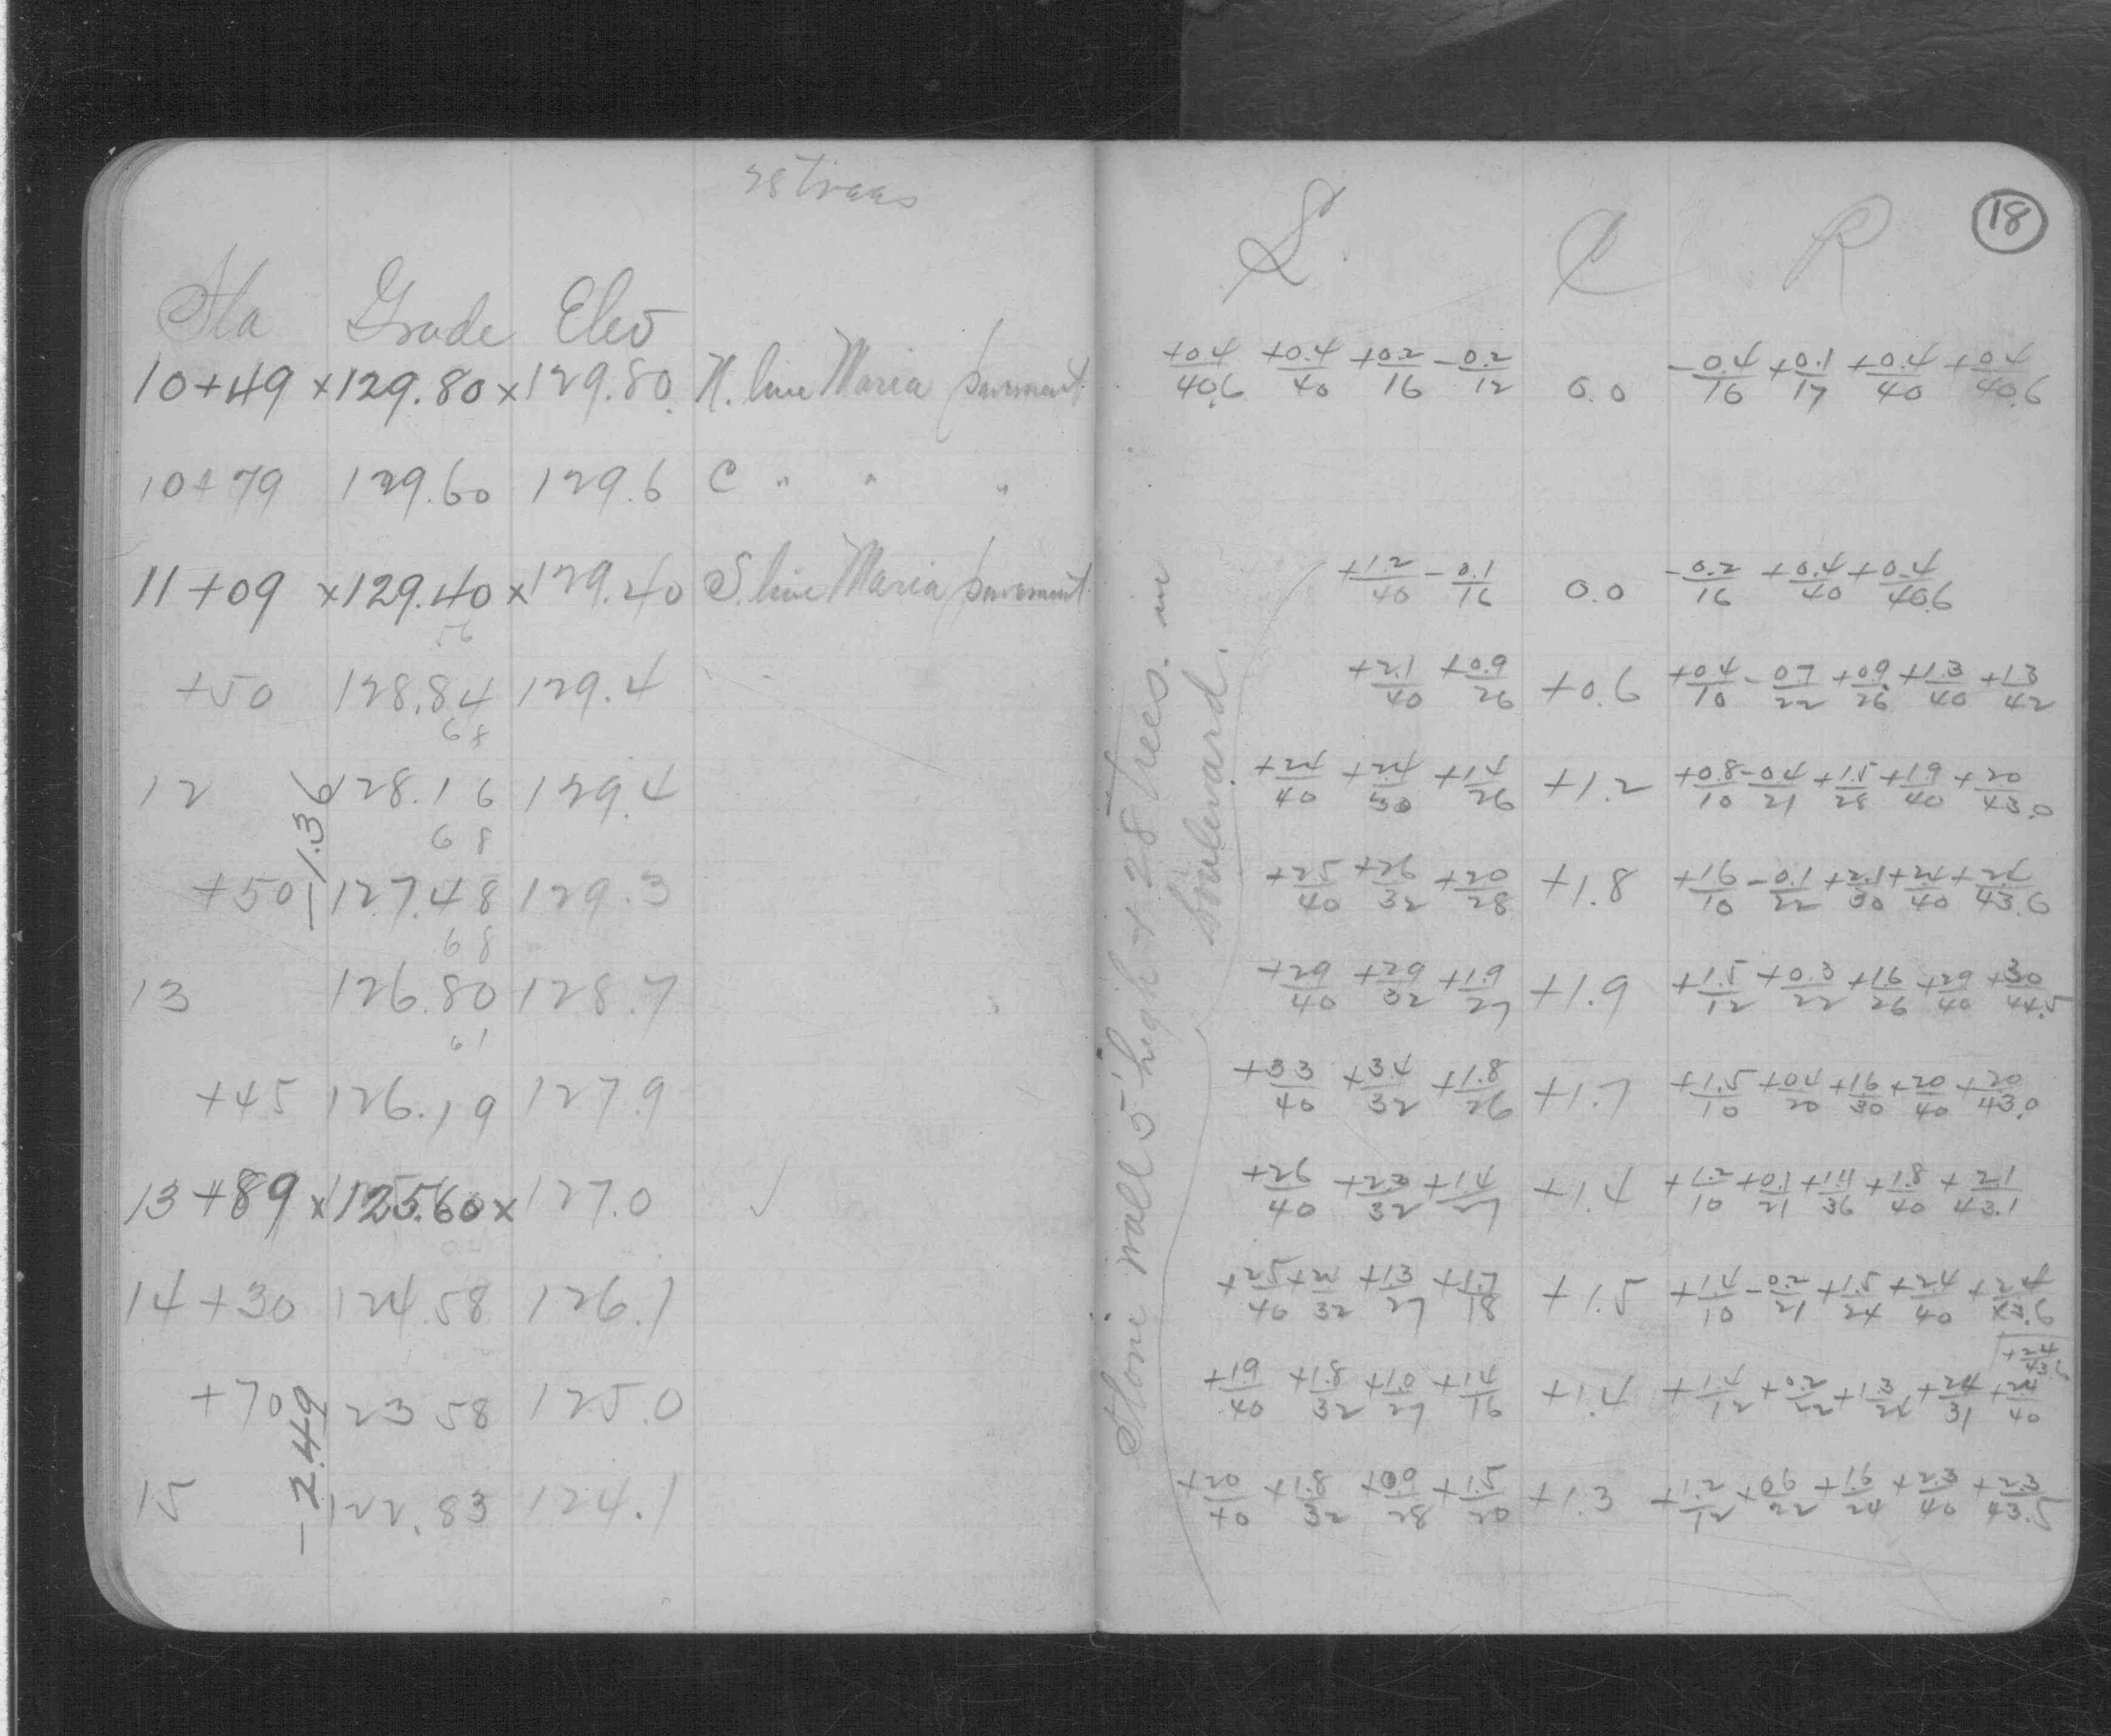 28 trees
Sta Grade Elev
10+49 x129.80 x129.80 N. line Maria pavement
10+79 129.60 129.6 C " " "
11+09 x129.40 x129.40 S. line Maria pavement
56
+50 128.84 129.4
68
12 128.16 129.4
68
-1.36
+50 127.48 129.3
68
13 126.80 128.7
61
+45 126.19 127.9
13+89 x125.60x 127.0 ✓
14+30 124.58 126.1
+70 23 58 125.0
-2.49
15 122.83 124.1
18
L. C R
+0.4/40.6 +0.4/40 +0.2/16 -0.2/12 0.0 -0.4/16 +0.1/17 +0.4/40 +0.4/40.6
+1.2/40 -0.1/16 0.0 -0.2/16 +0.4/40 +0.4/40.6
+2.1/40 +0.9/26 +0.6 +0.4/10 -0.7/22 +0.9/26 +1.3/40 +1.3/42
+24/40 +2.4/30 +1.4/26 +1.2 +0.8/10 -0.4/21 +1.5/28 +1.9/40 +20/43.0
+25/40 +26/32 +20/28 +1.8 +16/10 -0.1/22 +2.1/30 +2.4/40 +2.4/43.6
+29/40 +29/32 +1.9/27 +1.9 +1.5/12 +0.3/22 +16/26 +29/40 +30/44.5
+33/40 +34/32 +1.8/26 +1.7 +1.5/10 +04/20 +16/30 +20/40 +20/43.0
+26/40 +2.3/32 +14/27 +1.4 +1.2/10 +0.1/21 +1.1/36 +1.8/40 +21/43.1
+25/40 +21/32 +13/27 +1.7/18 +1.5 +1.4/10 -0.2/21 +1.5/24 +2.4/40 +2.4/43.6
+24/43.6
+19/40 +1.8/32 +1.0/27 +14/16 +1.4 +1.4/12 +0.2/22 +1.3/22 +24/31 +24/40
+20/40 +1.8/32 +0.9/28 +1.5/20 +1.3 +1.2/12 +06/22 +16/24 +2.3/40 +2.3/43.5
Stone wall 5' high + 28 trees. in
boulevard.